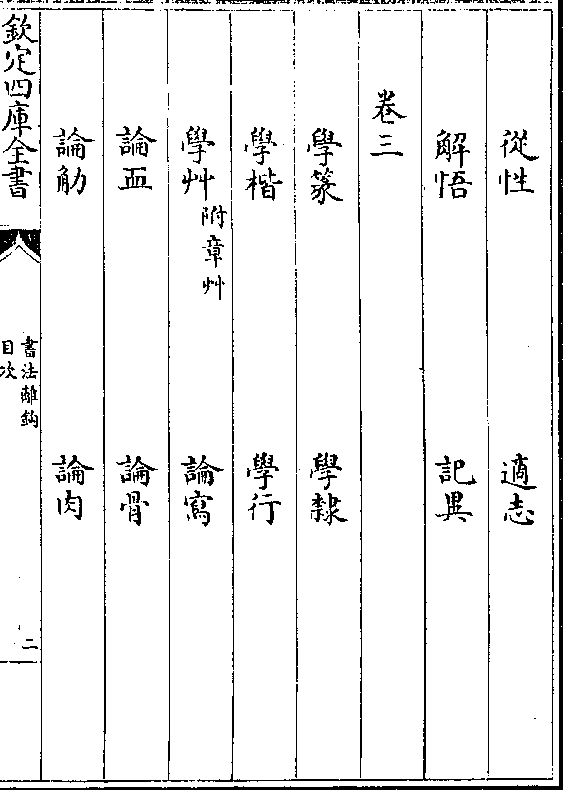 從性　適志
解悟　記異
卷三
學篆　學隸
學楷　學行
學艸附章艸　論寫
論血　論骨
論觔　論肉
欽定四庫全書
書法離鈎
目次
二